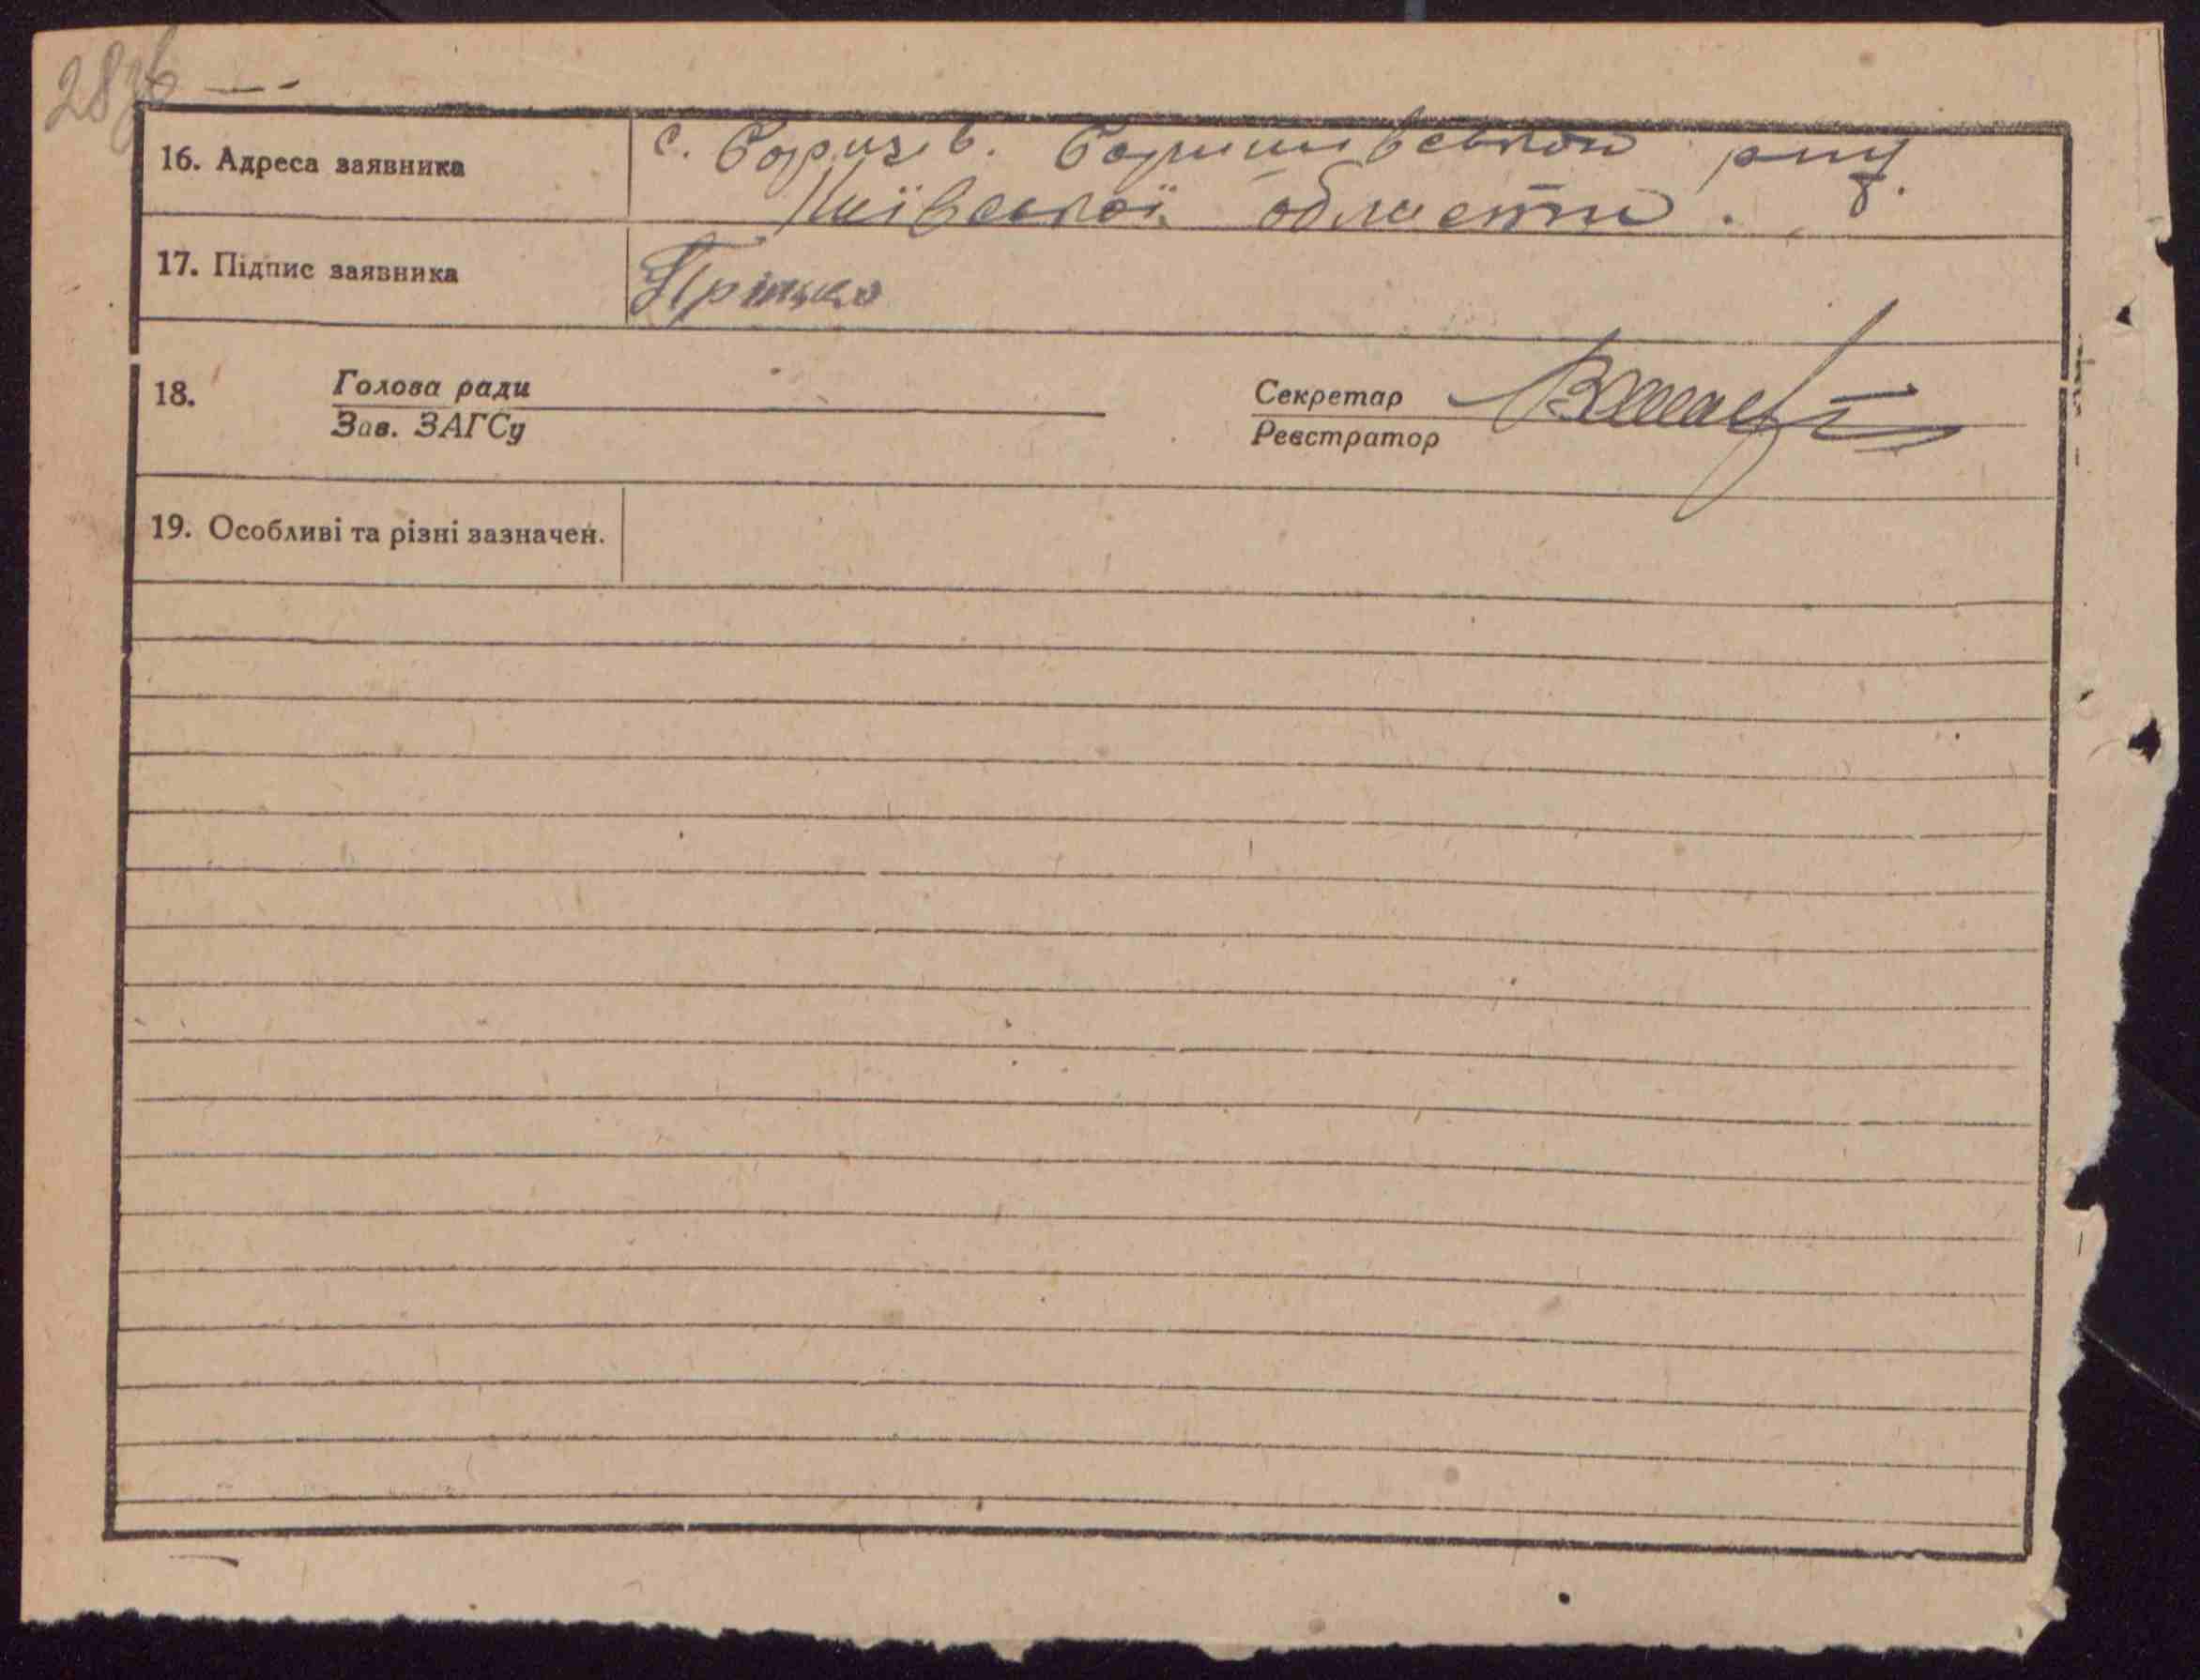 28зв
16. Адреса заявника
с. Баришівської р-ну
Київської области.
17. Підпис заявника
Гріцько
18. Голова ради
Зав. ЗАГСу
Секретар
Реєстратор
19. Особливі та різні зазначен.